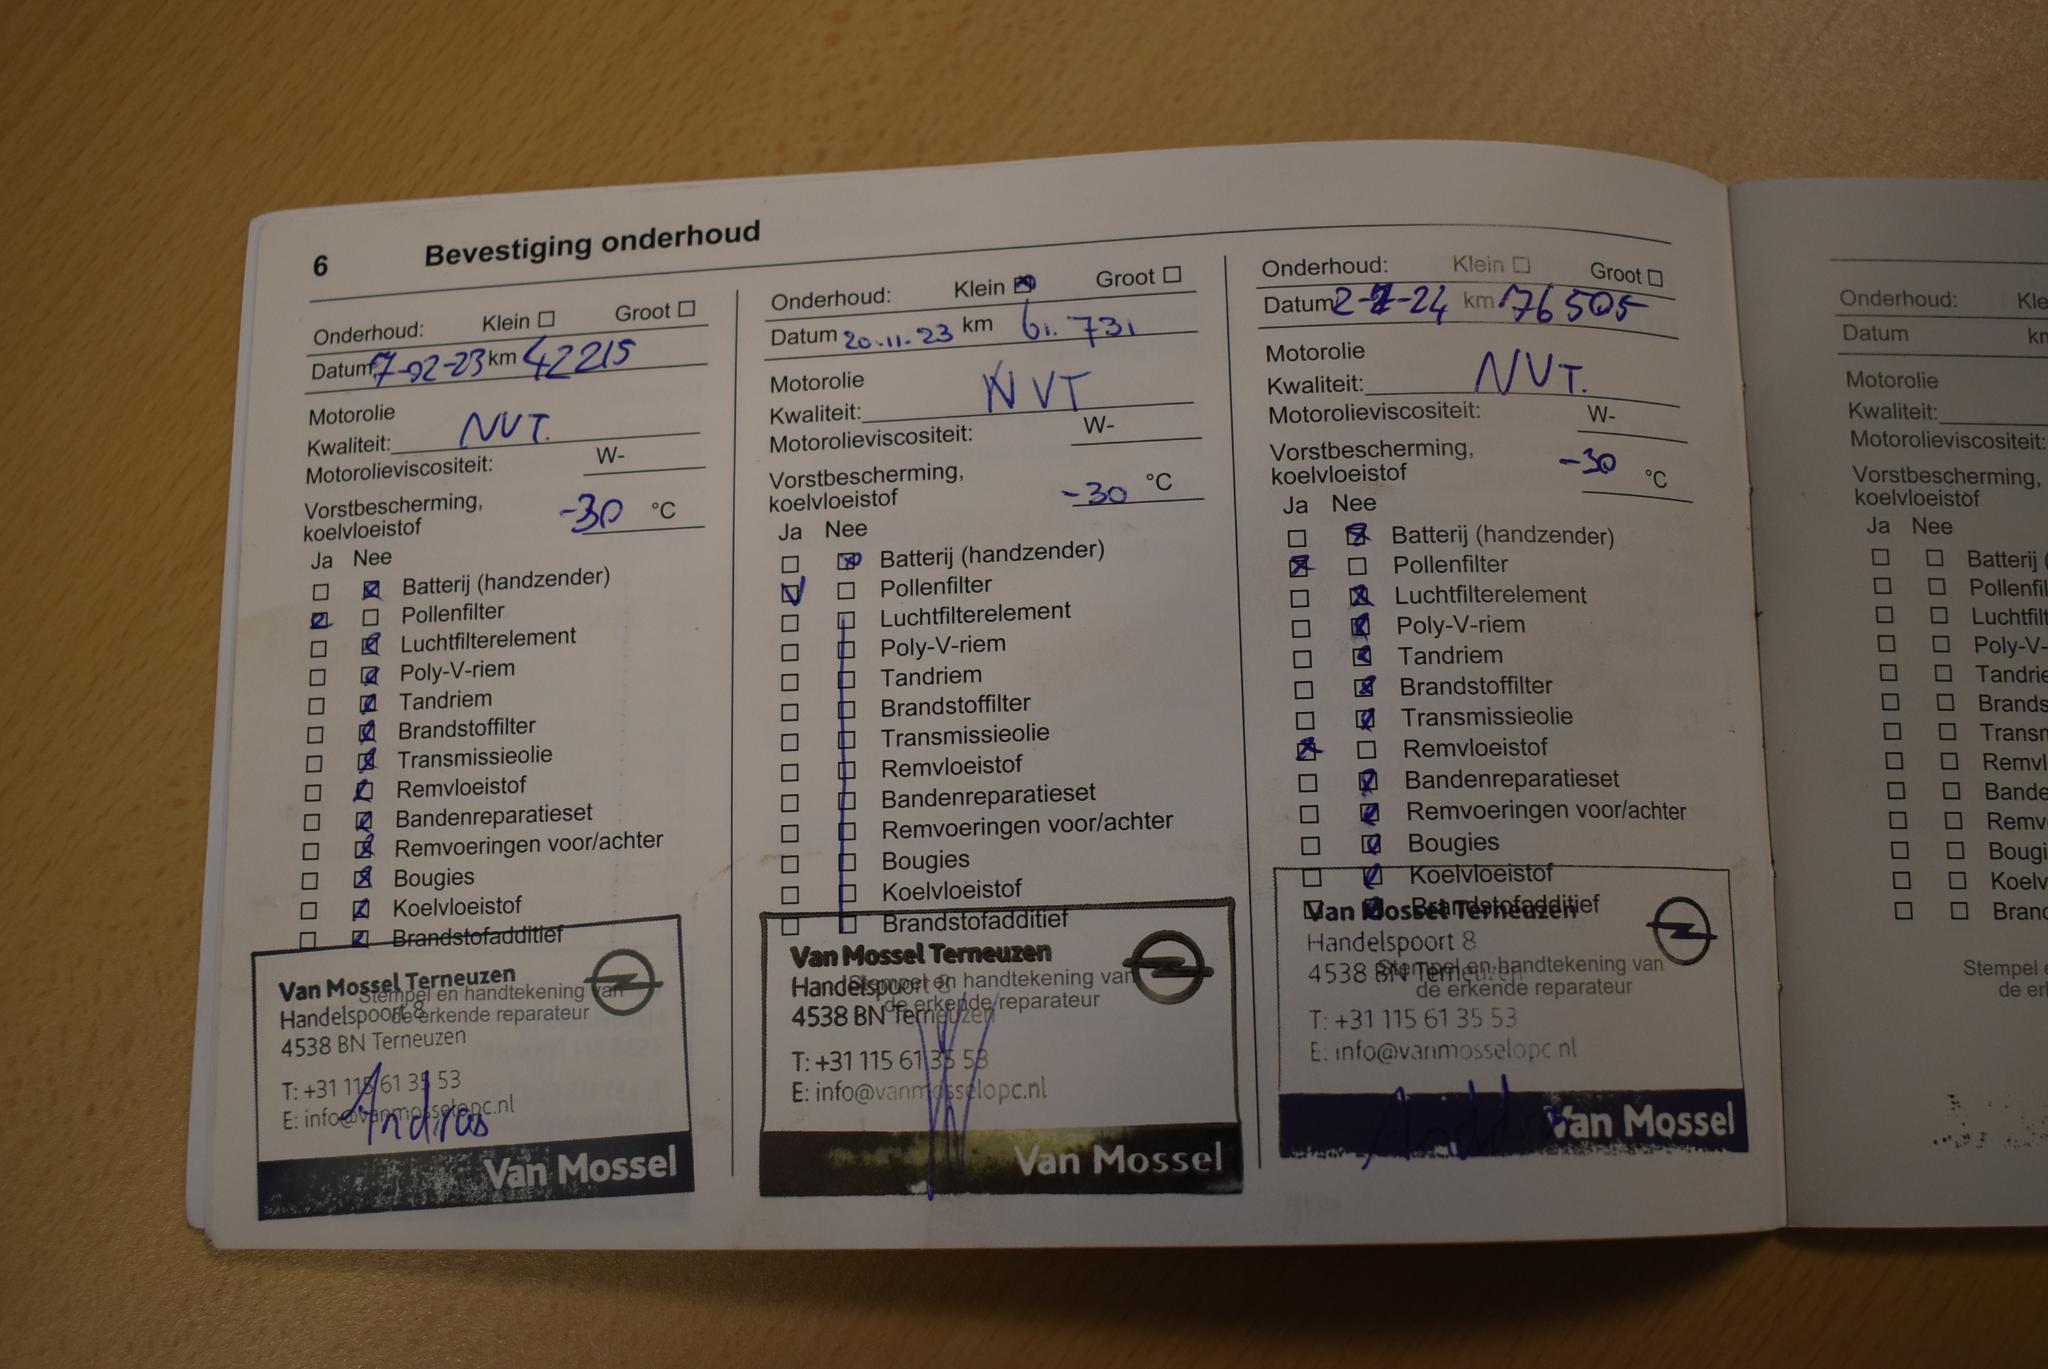 6 Bevestiging onderhoud
Onderhoud: Klein Groot
Datum 7-02-23 km 42215
Motorolie
Kwaliteit: NVT.
Motorolieviscositeit: W-
Vorstbescherming,
koelvloeistof -30 °C
Ja Nee
Batterij (handzender)
Pollenfilter
Luchtfilterelement
Poly-V-riem
Tandriem
Brandstoffilter
Transmissieolie
Remvloeistof
Bandenreparatieset
Remvoeringen voor/achter
Bougies
Koelvloeistof
Brandstofadditief
Stempel en handtekening van
de erkende reparateur
Van Mossel Terneuzen
Handelspoort 8
4538 BN Terneuzen
T: +31 115 61 35 53
E: info@vanmosselopc.nl
Andras
Van Mossel
Onderhoud: Klein Groot
Datum 20-11-23 km 61.731
Motorolie
Kwaliteit: NVT
Motorolieviscositeit: W-
Vorstbescherming,
koelvloeistof -30 °C
Ja Nee
Batterij (handzender)
Pollenfilter
Luchtfilterelement
Poly-V-riem
Tandriem
Brandstoffilter
Transmissieolie
Remvloeistof
Bandenreparatieset
Remvoeringen voor/achter
Bougies
Koelvloeistof
Brandstofadditief
Stempel en handtekening van
de erkende reparateur
Van Mossel Terneuzen
Handelspoort 8
4538 BN Terneuzen
T: +31 115 61 35 53
E: info@vanmosselopc.nl
Van Mossel
Onderhoud: Klein Groot
Datum km 76505
Motorolie
Kwaliteit: NVT.
Motorolieviscositeit: W-
Vorstbescherming,
koelvloeistof -30 °C
Ja Nee
Batterij (handzender)
Pollenfilter
Luchtfilterelement
Poly-V-riem
Tandriem
Brandstoffilter
Transmissieolie
Remvloeistof
Bandenreparatieset
Remvoeringen voor/achter
Bougies
Koelvloeistof
Brandstofadditief
Stempel en handtekening van
de erkende reparateur
Van Mossel Terneuzen
Handelspoort 8
4538 BN Terneuzen
T: +31 115 61 35 53
E: info@vanmosselopc.nl
Van Mossel
Onderhoud: Kle
Datum km
Motorolie
Kwaliteit:
Motorolieviscositeit:
Vorstbescherming,
koelvloeistof
Ja Nee
Batterij
Pollenfil
Luchtfil
Poly-V-
Tandrie
Brands
Transm
Remvl
Bande
Remv
Bougi
Koelv
Brand
Stempel e
de er